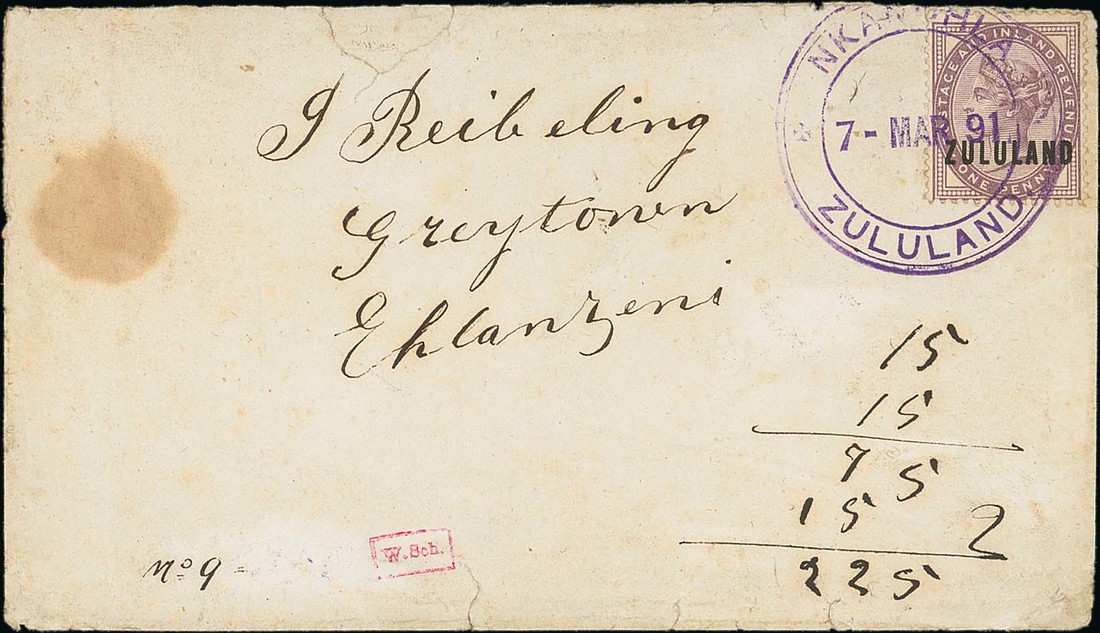 I Reibeling
Greytown
Ehlanzeni
ZULULAND
7 - MAR 91
POSTAGE AND INLAND REVENUE
ONE PENNY
ZULULAND
15
15
75
15 2
225
No 9 =
W. Sch.